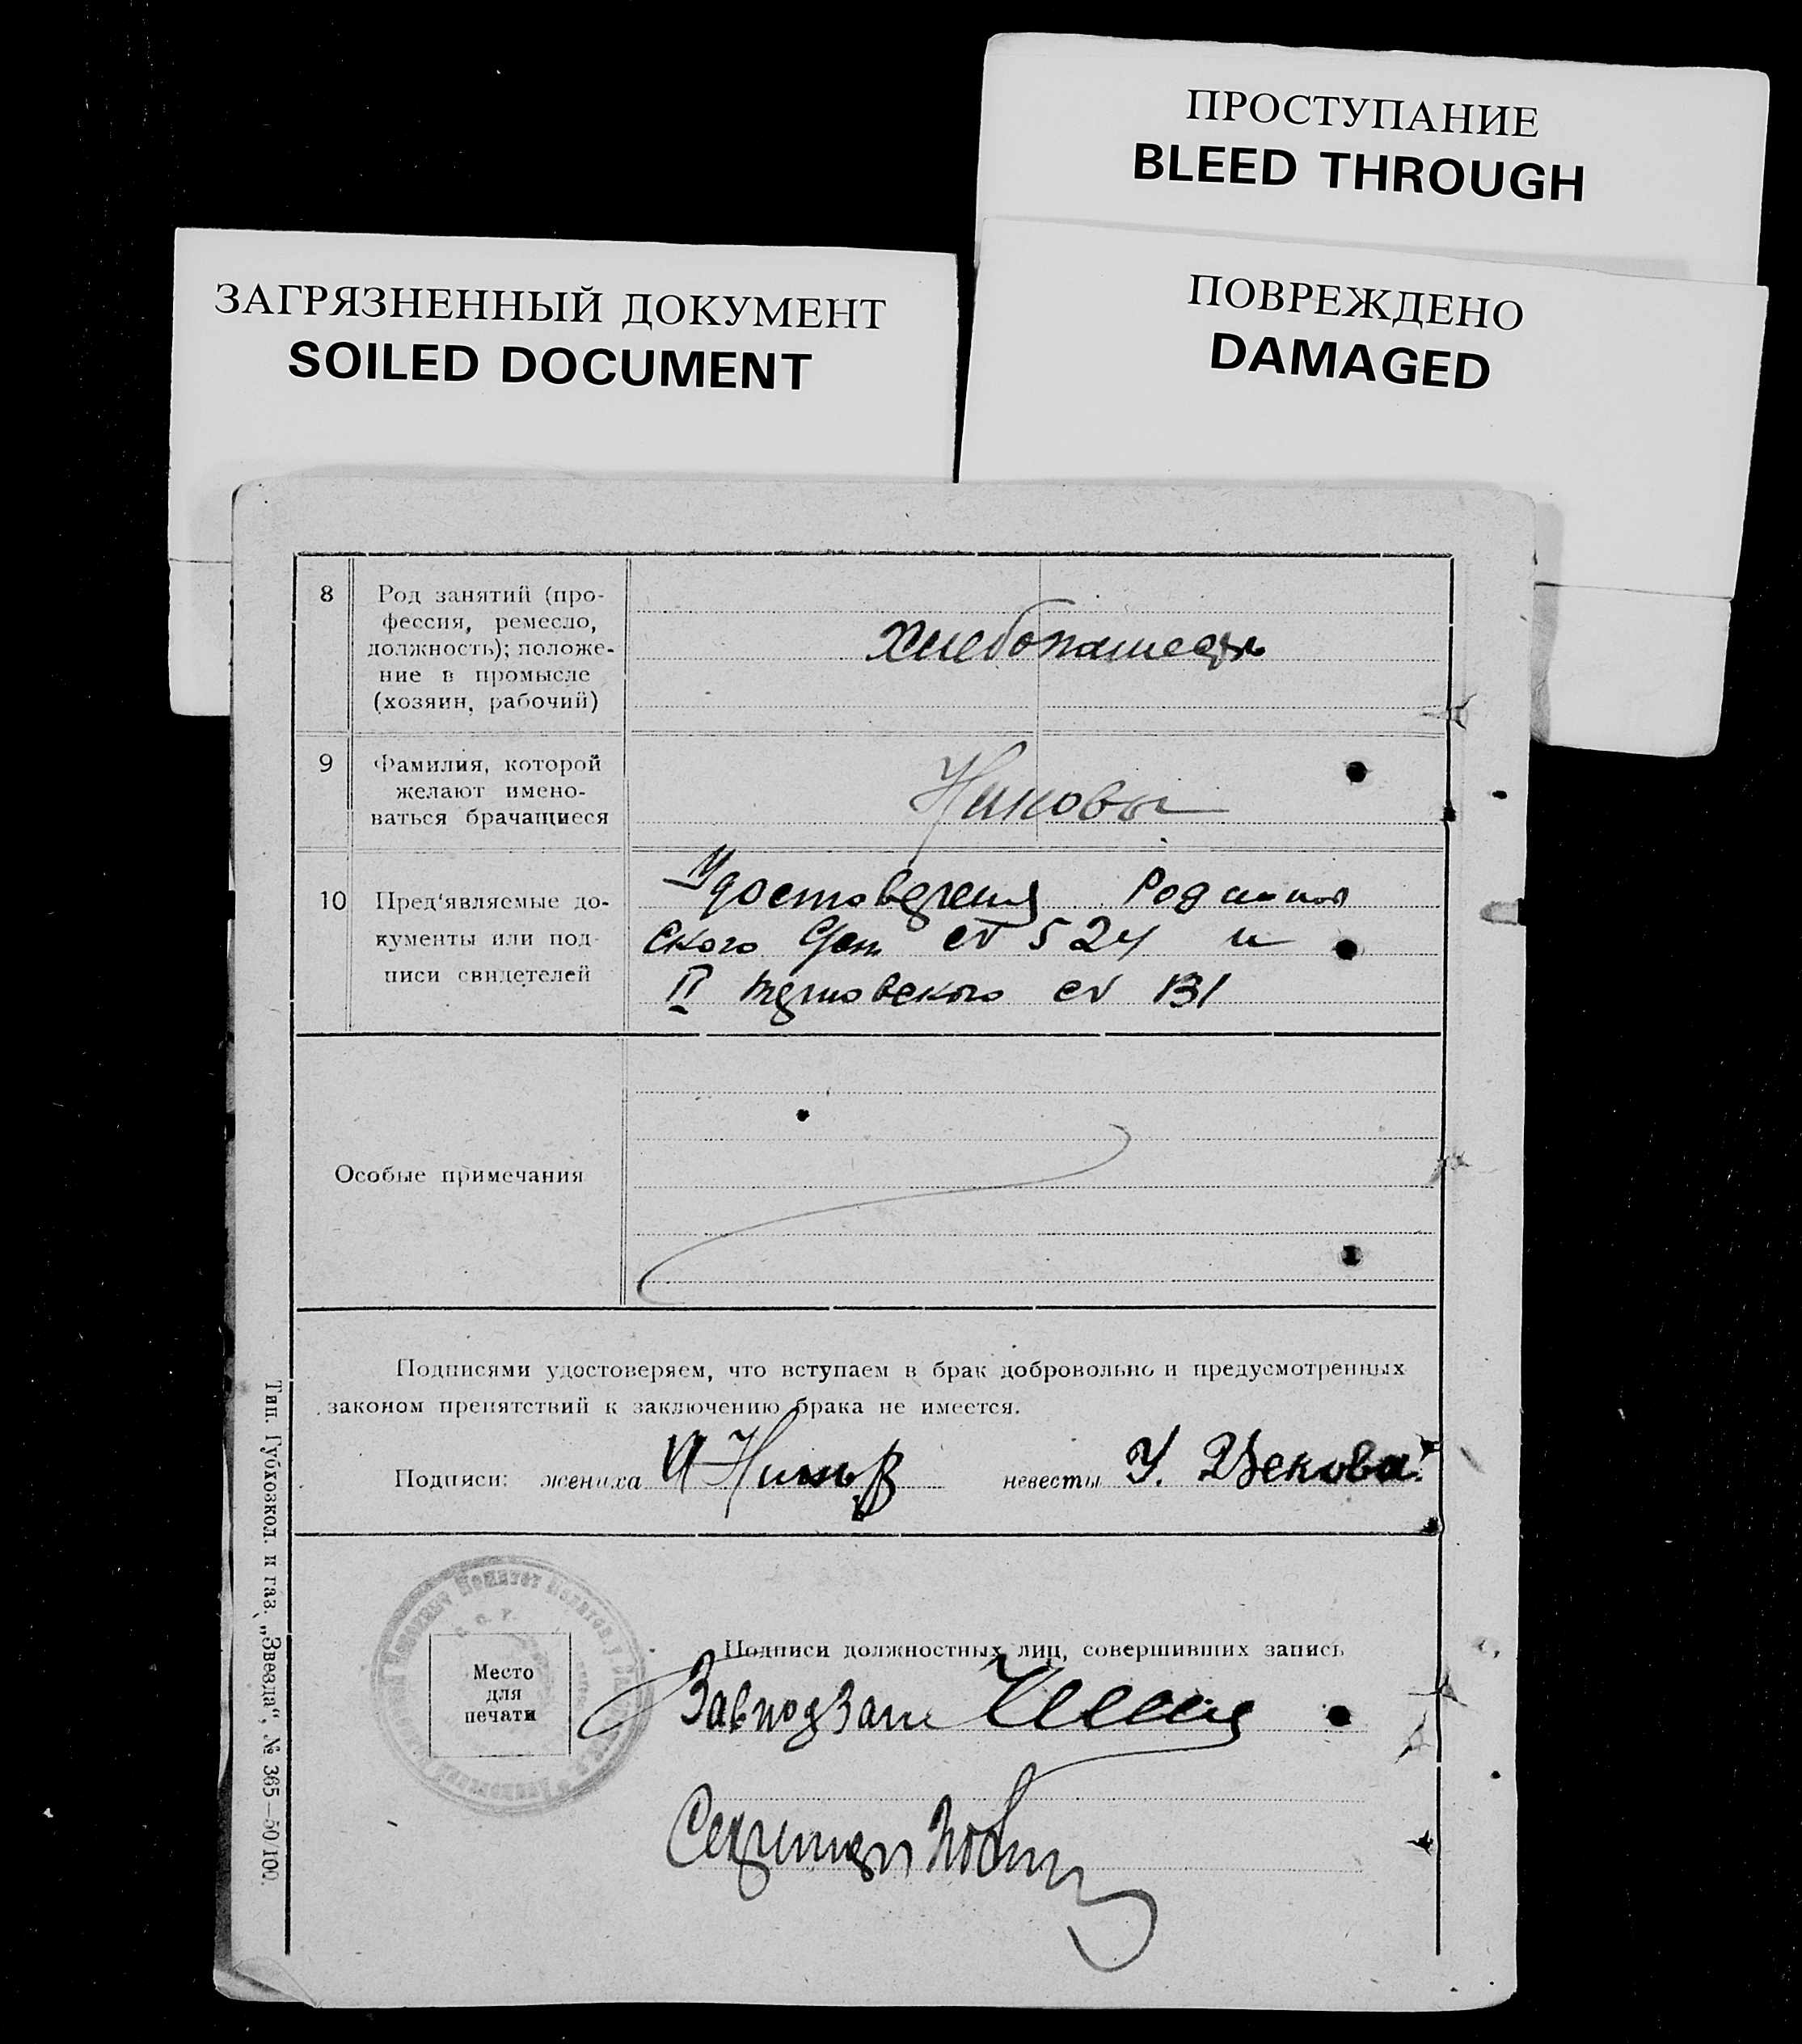 ПРОСТУПАНИЕ
BLEED THROUGH
ЗАГРЯЗНЕННЫЙ ДОКУМЕНТ
SOILED DOCUMENT
ПОВРЕЖДЕНО
DAMAGED
8
Род занятий (про-
фессия, ремесло,
должность); положе-
ние в промысле
(хозяин, рабочий)
хлебопашецъ
9
Фамилия, которой
желают имено-
ваться брачащиеся
10
Пред'являемые до-
кументы или под-
писи свидетелей
Удостоверения
ского 524 и
II 131
Особые примечания
Подписями удостоверяем, что вступаем в брак добровольно и предусмотренных
законом препятствий к заключению брака не имеется.
Подписи: жениха невесты У. Цекова
Место
для
печати
Подписи должностных лиц, совершивших запись
Завподзаг
Секретарь
Тип. Губхозкол. и газ. „Звезда", № 365—50/100.